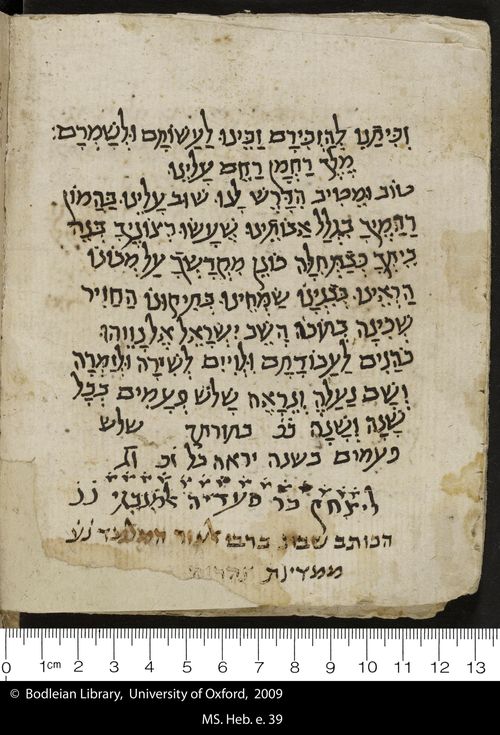 וְכִיתַּנוּ לְהַזְכִּירָם זַכֵּינוּ לַעֲשׂוֹתָם וּלְשָׁמְרָם:
מֶלֶךְ רַחֲמָן רַחֵם עָלֵינוּ
טוֹב וּמֵטִיב הִדָּרֶשׁ לָנוּ שׁוּב עָלֵינוּ בַּהֲמוֹן
רַחֲמֶיךָ בִּגְלַל אֲבוֹתֵינוּ שֶׁעָשׂוּ רְצוֹנֶיךָ בְּנֵה
בֵיתְךָ כְּבַתְּחִלָּה כּוֹנֵן מִקְדָּשְׁךָ עַל מְכוֹנוֹ
הַרְאֵינוּ בְּבִנְיָנוֹ שַׂמְּחֵינוּ בְּתִיקּוּנוֹ הַחֲזֵיר
שְׁכִינָה בְּתוֹכוֹ הָשֵׁב יִשְׂרָאֵל אֶל נָוֵוהוּ
כֹהֲנִים לַעֲבוֹדָתָם וּלְוִיִּם לְשִׁירָה וּלְזִמְרָה
וְשָׁם נַעֲלֶה וְנֵרָאֶה שָׁלֹשׁ פְּעָמִים בְּכָל
שָׁנָה וְשָׁנָה ככ בתורתך שלש
פעמים בשנה יראה כל זכ וג
ליצחק בר סעדיה
הכותב
ממדינת
0 1cm 2 3 4 5 6 7 8 9 10 11 12 13
© Bodleian Library, University of Oxford, 2009
MS. Heb. e. 39